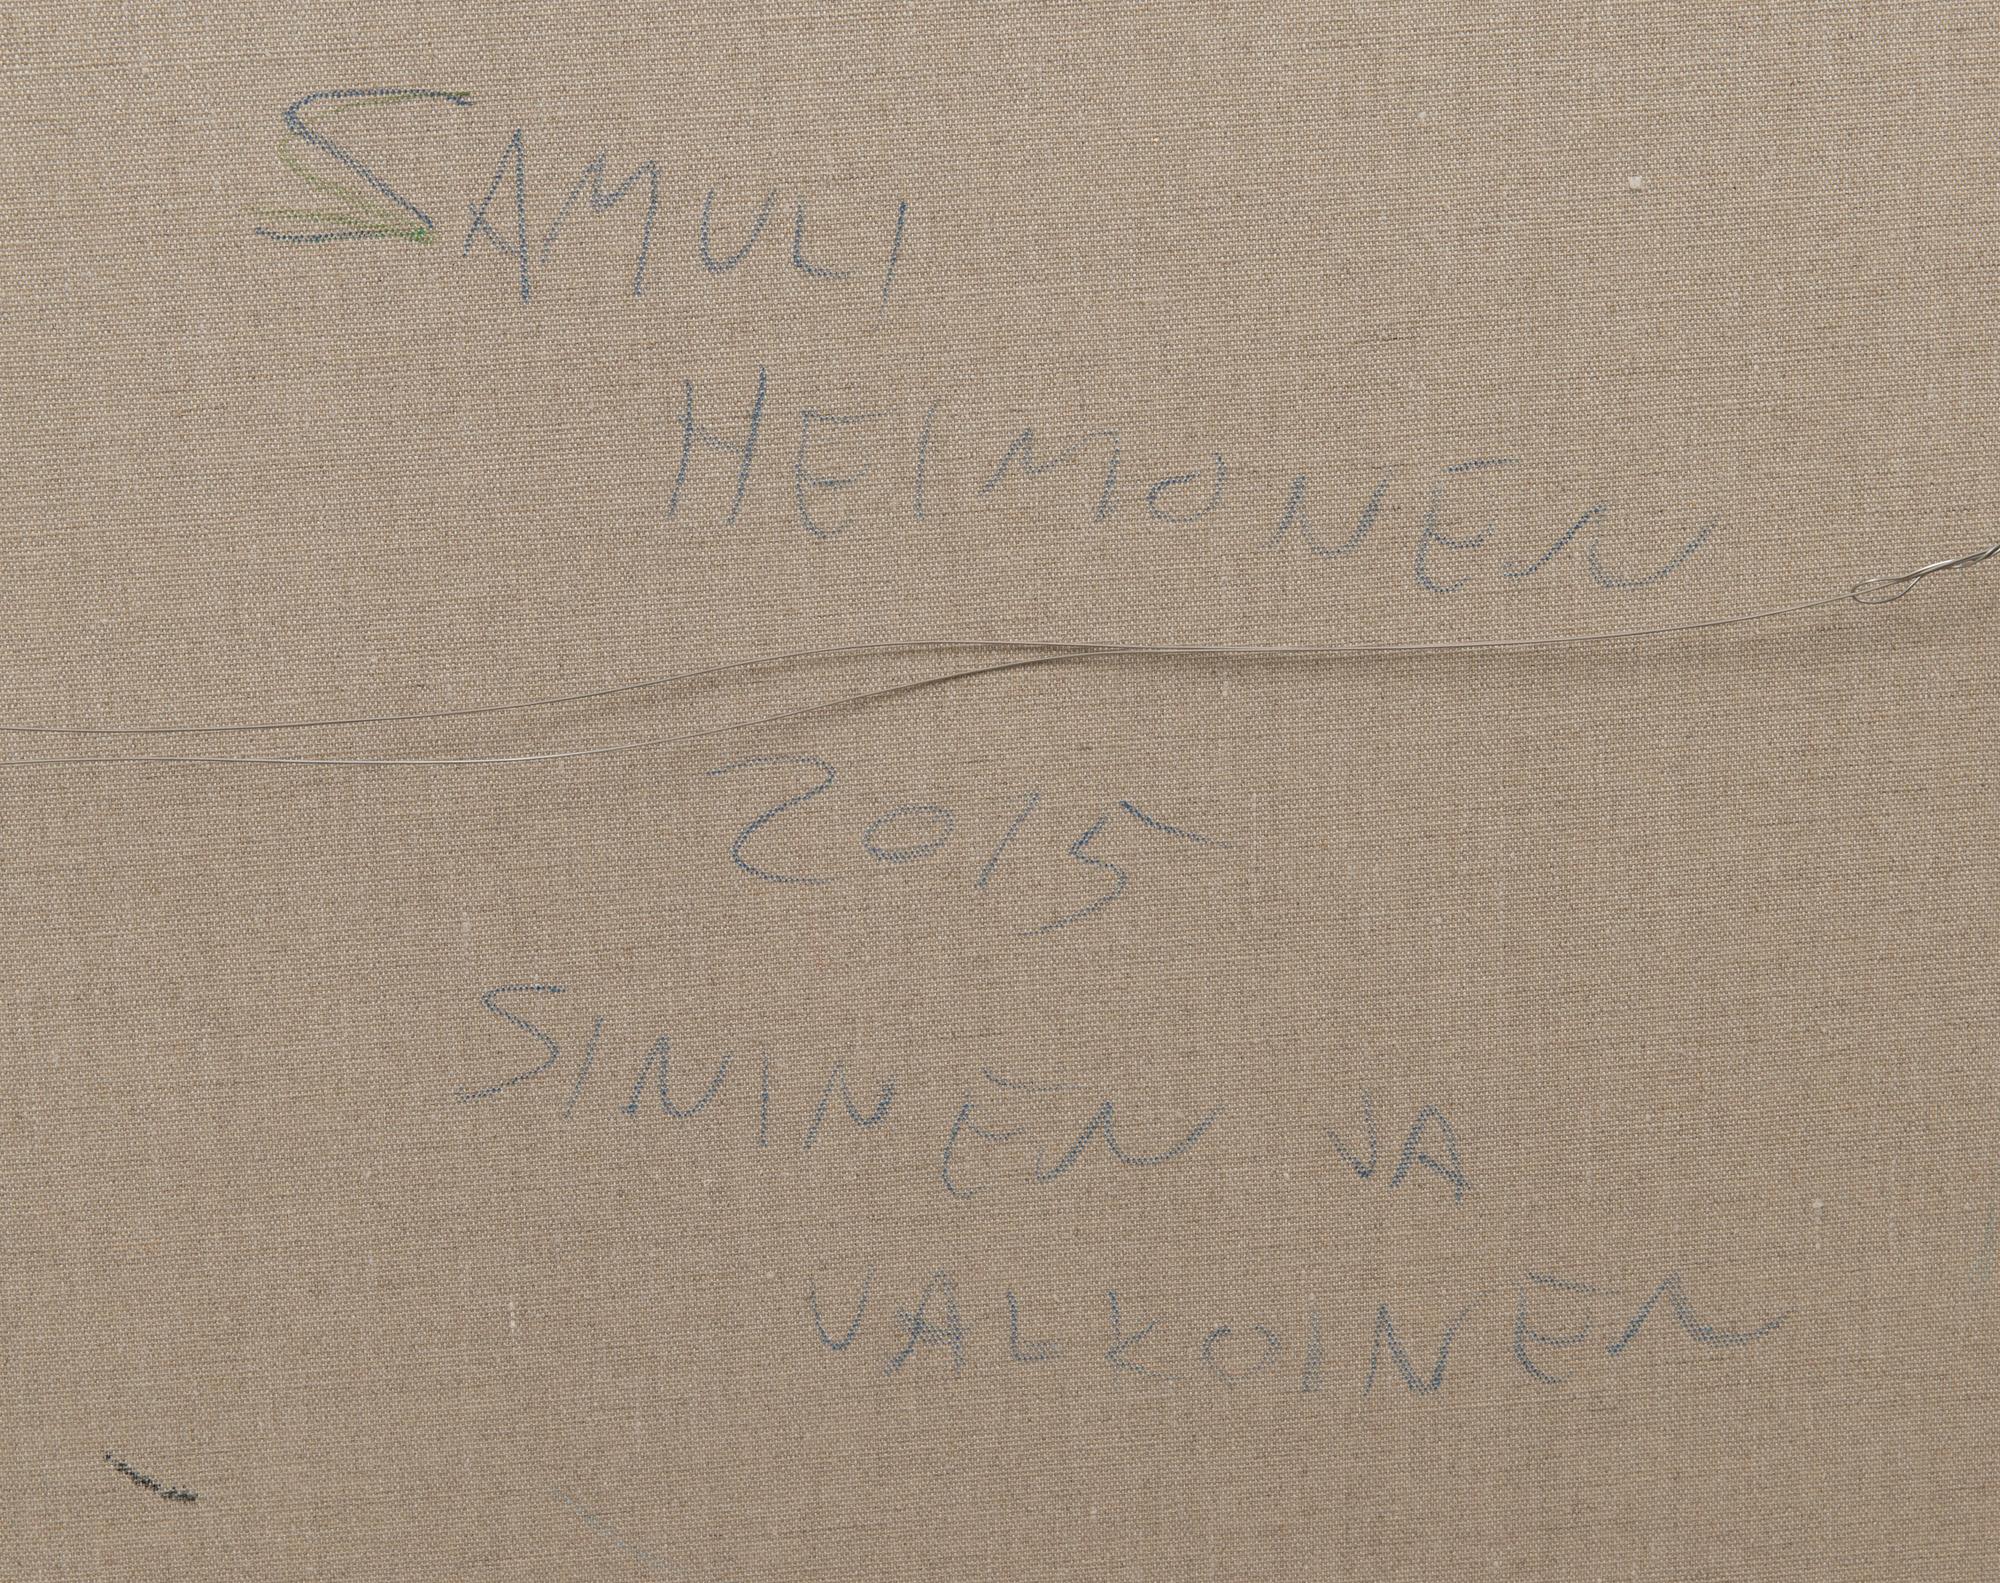 SAMULI
HEIMONEN
2015
SININEN JA
VALKOINEN